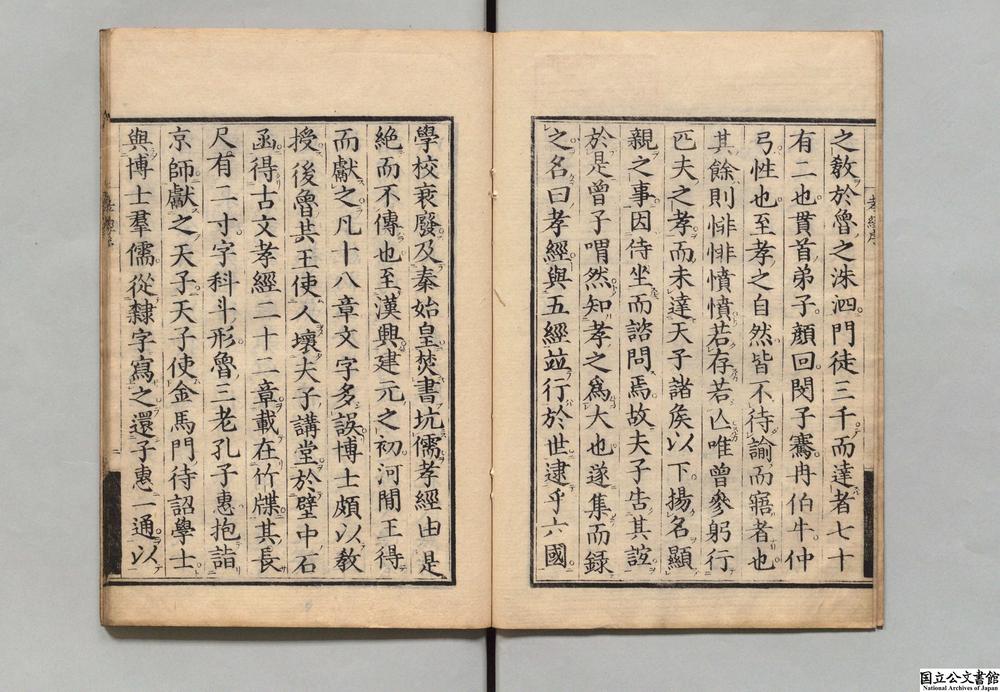 之敎於魯之洙泗門徒三千而達者七十
有二也貫首弟子顏回閔子騫冉伯牛仲
弓性也至孝之自然皆不待諭而寤者也
其餘則悱悱憤憤若存若亾唯曾參躬行
匹夫之孝而未達天子諸矦以下揚名顯
親之事因侍坐而諮問焉故夫子告其誼
於是曾子喟然知孝之爲大也遂集而録
之名曰孝經與五經並行於世逮乎六國
學校衰廢及秦始皇焚書坑儒孝經由是
絶而不傳也至漢興建元之初河閒王得
而獻之凡十八章文字多誤博士頗以敎
授後魯共王使人壞夫子講堂於壁中石
函得古文孝經二十二章載在竹牒其長
尺有二寸字科斗形魯三老孔子惠抱詣
京師獻之天子天子使金馬門待詔學士
與博士羣儒從隸字寫之還子惠一通以
孝經序
国立公文書館
National Archives of Japan